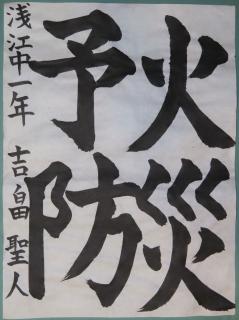 火災
予防
浅江中一年 吉畠聖人